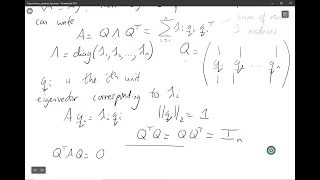 can write
A = Q Λ Qᵀ = Σ λᵢ qᵢ qᵢᵀ - Sum of
1 matrices
Λ = diag(λ₁, λ₂, ..., λₙ) Q = ( q₁ q₂ ... qₙ )
qᵢ is the i'th unit
eigenvector corresponding to λᵢ
A qᵢ = λᵢ qᵢ ||qᵢ||₂ = 1
QᵀQ = QQᵀ = Iₙ
QᵀAQ = 0